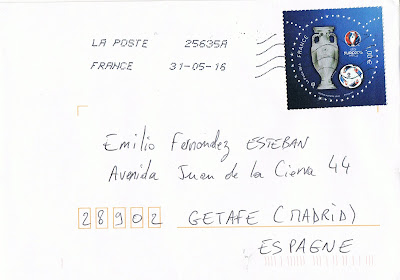 LA POSTE 25635A
FRANCE 31-05-16
FRANCE
EURO2016
1,00 €
Emilio Fernandez ESTEBAN
Avenida Juan de la Cierva 44
28902 GETAFE (MADRID)
ESPAGNE